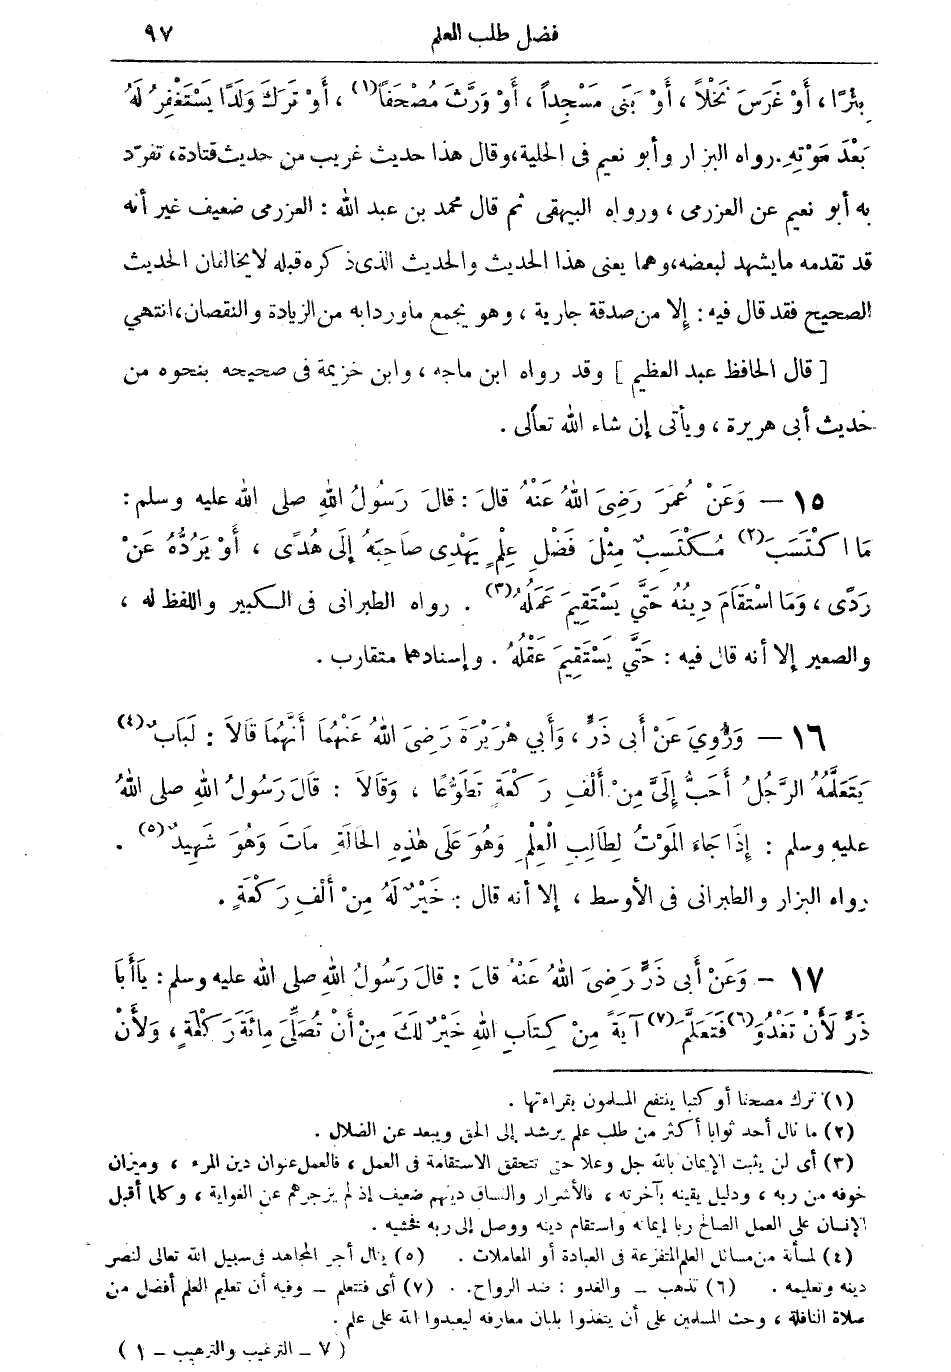 فضل طلب العلم ٩٧
بِئْرًا ، أَوْ غَرَسَ نَخْلاً ، أَوْ بَنَى مَسْجِداً ، أَوْ وَرَّثَ مُصْحَفاً(١) ، أَوْ تَرَكَ وَلَدًا يَسْتَغْفِرُ لَهُ
بَعْدَ مَوْتِهِ. رواه البزار وأبو نعيم فى الحلية،وقال هذا حديث غريب من حديث قتادة، تفرّد
به أبو نعيم عن العزرمى ، ورواه البيهقى ثم قال محمد بن عبد الله : العزرمى ضعيف غير أنه
قد تقدمه مايشهد لبعضه،وهما يعنى هذا الحديث والحديث الذى ذكره قبله لايخالفان الحديث
الصحيح فقد قال فيه : إلا من صدقة جارية ، وهو يجمع ماوردا به من الزيادة والنقصان،انتهي
[ قال الحافظ عبد العظيم ] وقد رواه ابن ماجه ، وابن خزيمة فى صحيحه بنحوه من
حديث أبى هريرة ، ويأتى إن شاء الله تعالى .
١٥ — وَعَنْ عُمَرَ رَضِىَ اللهُ عَنْهُ قَالَ : قَالَ رَسُولُ اللهِ صلى الله عليه وسلم :
مَا اكْتَسَبَ(٢) مُكْتَسِبٌ مِثْلَ فَضْلِ عِلْمٍ يَهْدِى صَاحِبَهُ إِلَى هُدًى ، أَوْ يَرُدُّهُ عَنْ
رَدًى ، وَمَا اسْتَقَامَ دِينُهُ حَتَّى يَسْتَقِيمَ عَمَلُهُ(٣) . رواه الطبرانى فى الكبير واللفظ له ،
والصغير إلا أنه قال فيه : حَتَّى يَسْتَقِيمَ عَقْلُهُ . وإسنادهما متقارب .
١٦ — وَرُوِيَ عَنْ أَبى ذَرٍّ ، وَأَبي هُرَيْرَةَ رَضِىَ اللهُ عَنْهُمَا أَنَّهُمَا قَالاَ : لَبَابٌ(٤)
يَتَعَلَّمُهُ الرَّجُلُ أَحَبُّ إِلَىَّ مِنْ أَلْفِ رَكْعَةٍ تَطَوُّعًا ، وَقَالاَ : قَالَ رَسُولُ اللهِ صلى اللهُ
عليه وسلم : إِذَا جَاءَ المَوْتُ لِطَالِبِ الْعِلْمِ وَهُوَ عَلَى هٰذِهِ الحَالَةِ مَاتَ وَهُوَ شَهِيدٌ(٥) .
رواه البزار والطبرانى فى الأوسط ، إلا أنه قال : خَيْرٌ لَهُ مِنْ أَلْفِ رَكْعَةٍ .
١٧ — وَعَنْ أَبى ذَرٍّ رَضِىَ اللهُ عَنْهُ قَالَ : قَالَ رَسُولُ اللهِ صلى الله عليه وسلم : يَاأَبَا
ذَرٍّ لَأَنْ تَغْدُوَ(٦) فَتَعَلَّمَ(٧) آيَةً مِنْ كِتَابِ اللهِ خَيْرٌ لَكَ مِنْ أَنْ تُصَلِّىَ مِائَةَ رَكْعَةٍ ، وَلَأَنْ
(١) ترك مصحفا أو كتبا ينتفع المسلمون بقراءتها .
(٢) ما نال أحد ثوابا أكثر من طلب علم يرشد إلى الحق ويبعد عن الضلال .
(٣) أى لن يثبت الإيمان بالله جل وعلا حتى تتحقق الاستقامة فى العمل ، فالعمل عنوان دين المرء ، وميزان
خوفه من ربه ، ودليل يقينه بآخرته ، فالأشرار والفساق دينهم ضعيف إذ لم يزجرهم عن الغواية ، وكلما أقبل
الإنسان على العمل الصالح ربا إيمانه واستقام دينه ووصل إلى ربه فخشيه .
(٤) لمسألة من مسائل العلم المتفرعة فى العبادة أو المعاملات . (٥) ينال أجر المجاهد فى سبيل الله تعالى لنصر
دينه وتعليمه . (٦) تذهب — والغدو : ضد الرواح . (٧) أى فتتعلم — وفيه أن تعليم العلم أفضل من
صلاة النافلة ، وحث المسلمين على أن يتغذوا بلبان معارفه ليعبدوا الله على علم .
( ٧ — الترغيب والترهيب — ١ )